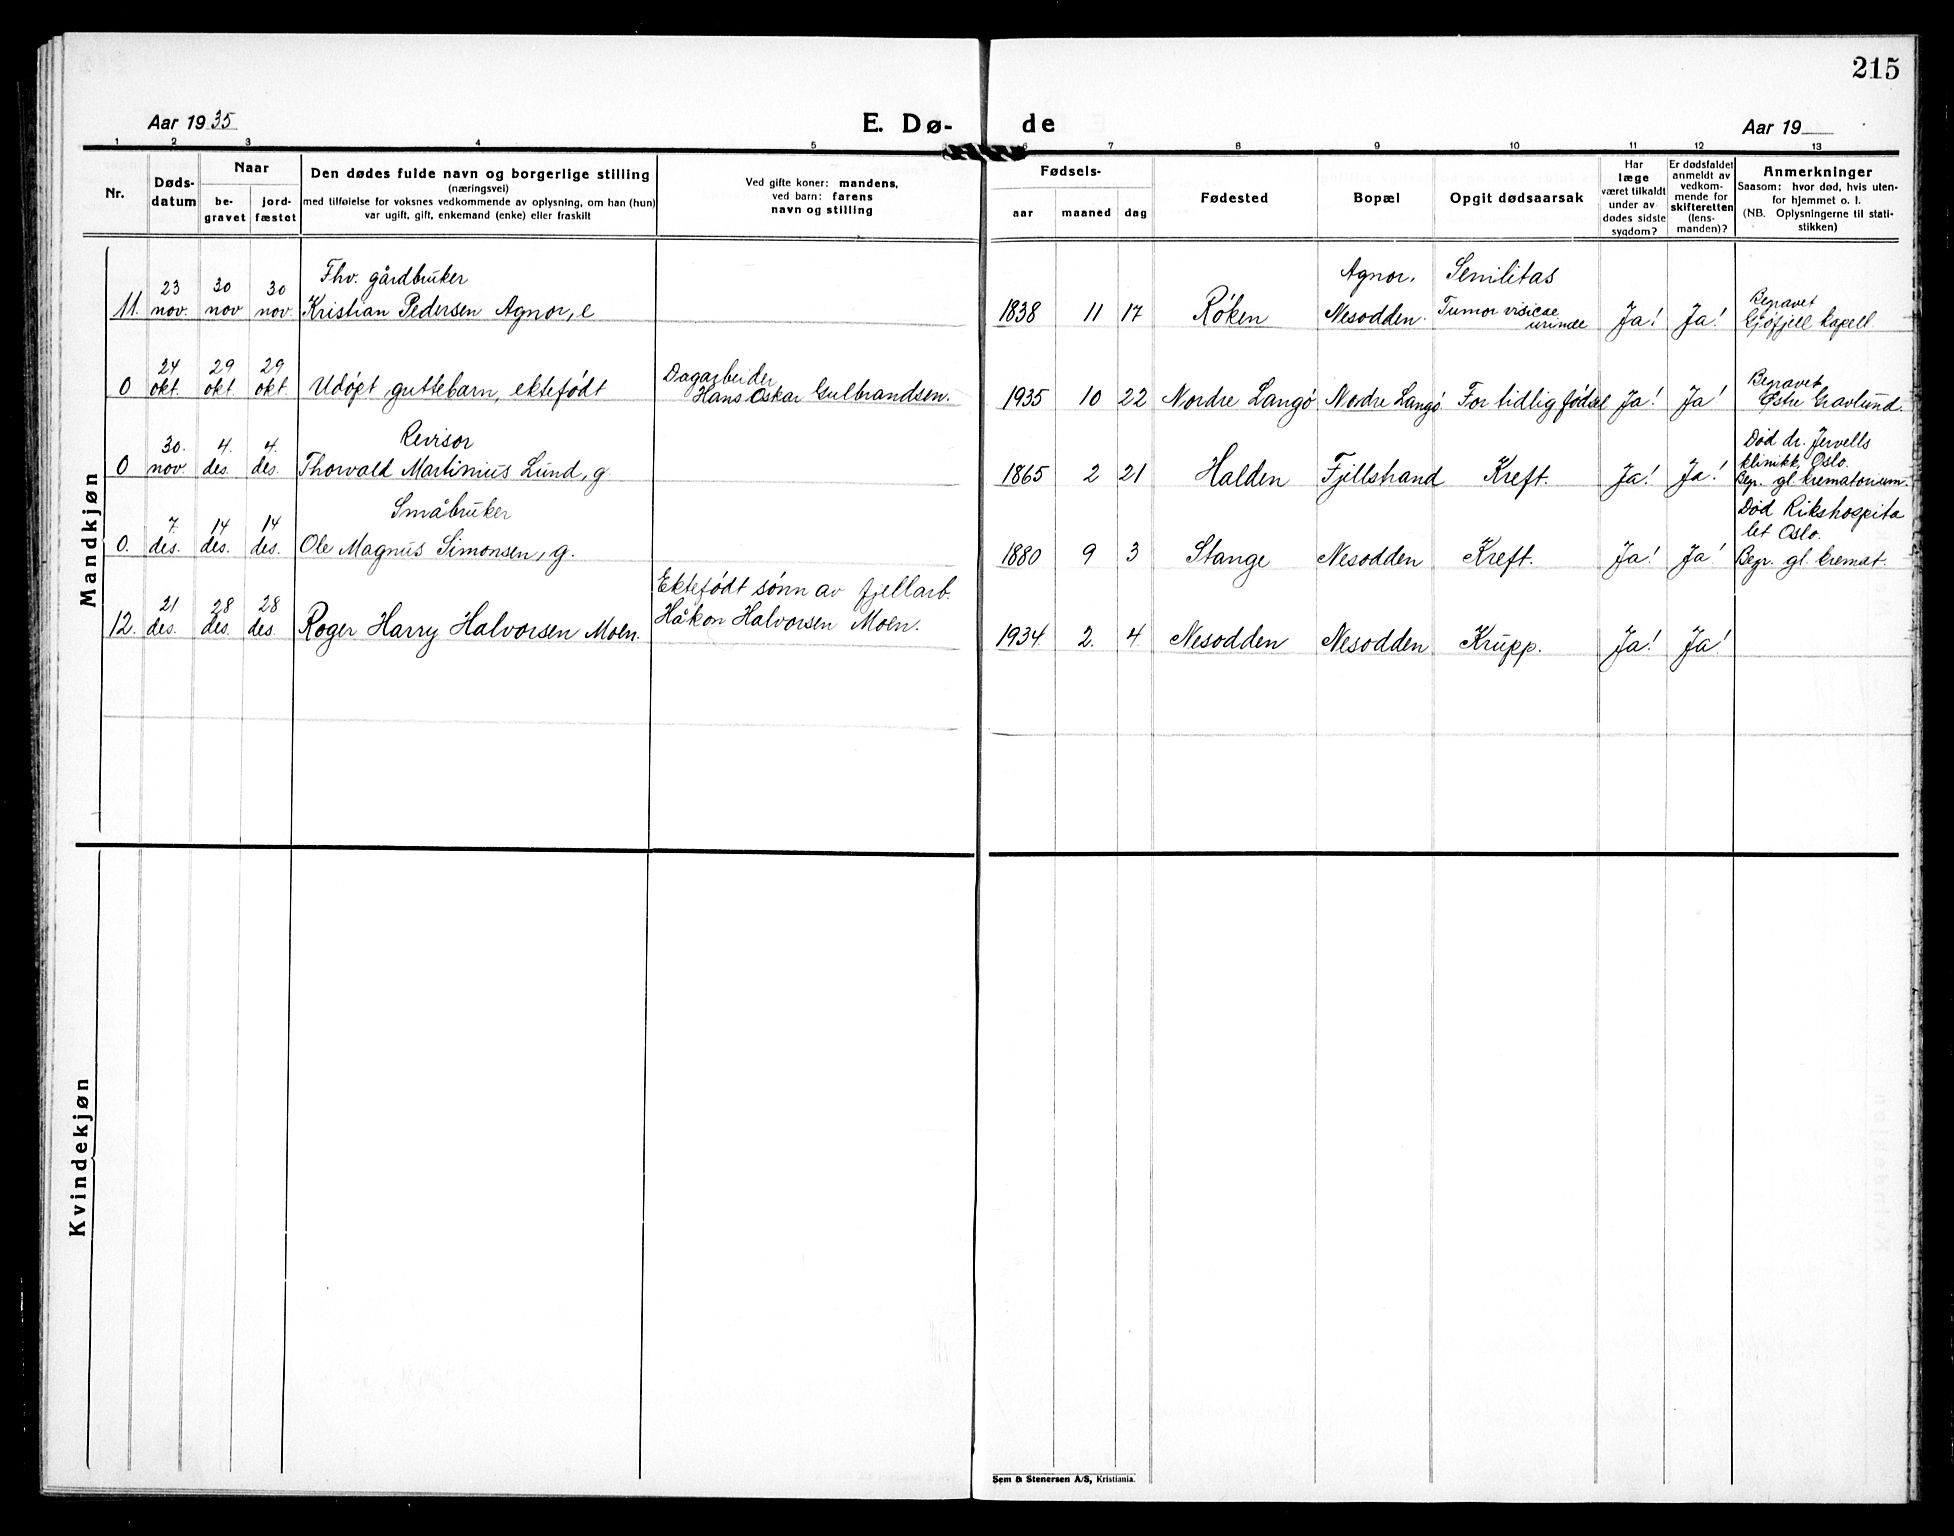 215
Aar 1935
E. Dø-
de
Aar 19
1 2 3 4 5 6 7 8 9 10 11 12 13
Nr.
Døds-
datum
Naar
be-
gravet
jord-
fæstet
Den dødes fulde navn og borgerlige stilling
(næringsvei)
med tilføielse for voksnes vedkommende av oplysning, om han (hun)
var ugift, gift, enkemand (enke) eller fraskilt
Ved gifte koner: mandens,
ved barn: farens
navn og stilling
Fødsels-
aar maaned dag
Fødested
Bopæl
Opgit dødsaarsak
Har
læge
været tilkaldt
under av-
dødes sidste
sygdom?
Er dødsfaldet
anmeldt av
vedkom-
mende for
skifteretten
(lens-
manden)?
Anmerkninger
Saasom: hvor død, hvis uten-
for hjemmet o. l.
(NB. Oplysningerne til stati-
stikken)
Mandkjøn
Fhv. gårdbruker Agnor, Senilitas
23 30 30 Begravet
11. nov. nov nov. Kristian Pedersen Agnor, e 1838 11 17 Røken Nesodden. Tumor visicae Ja! Ja! Gjøfjell kapell
urinae
24 29 29 Dagarbeider Begravet
0 okt. okt. okt. Udøpt guttebarn, ektefødt Hans Oskar Gulbrandsen. 1935 10 22 Nordre Langø Nordre Langø For tidlig fødsel Ja! Ja! Østre Gravlund.
30. 4. 4. Revisor Død dr. Jervells
0 nov. des. des. Thorvald Martinius Lund, g. 1865 2 21 Halden Fjellstrand Kreft. Ja! Ja! klinikk, Oslo.
Begr. gl. krematorium.
7. 14 14 Småbruker Død Rikshospita
0. des. des. des. Ole Magnus Simonsen, g. 1880 9 3 Stange Nesodden Kreft. Ja! Ja! let Oslo.
Begr. gl. kremat.
21 28 28 Ektefødt sønn av fjellarb.
12. des. des. des. Roger Harry Halvorsen Moen. Håkon Halvorsen Moen. 1934. 2. 4. Nesodden Nesodden Krupp. Ja! Ja!
Kvindekjøn
Sem & Stenersen A/S, Kristiania.